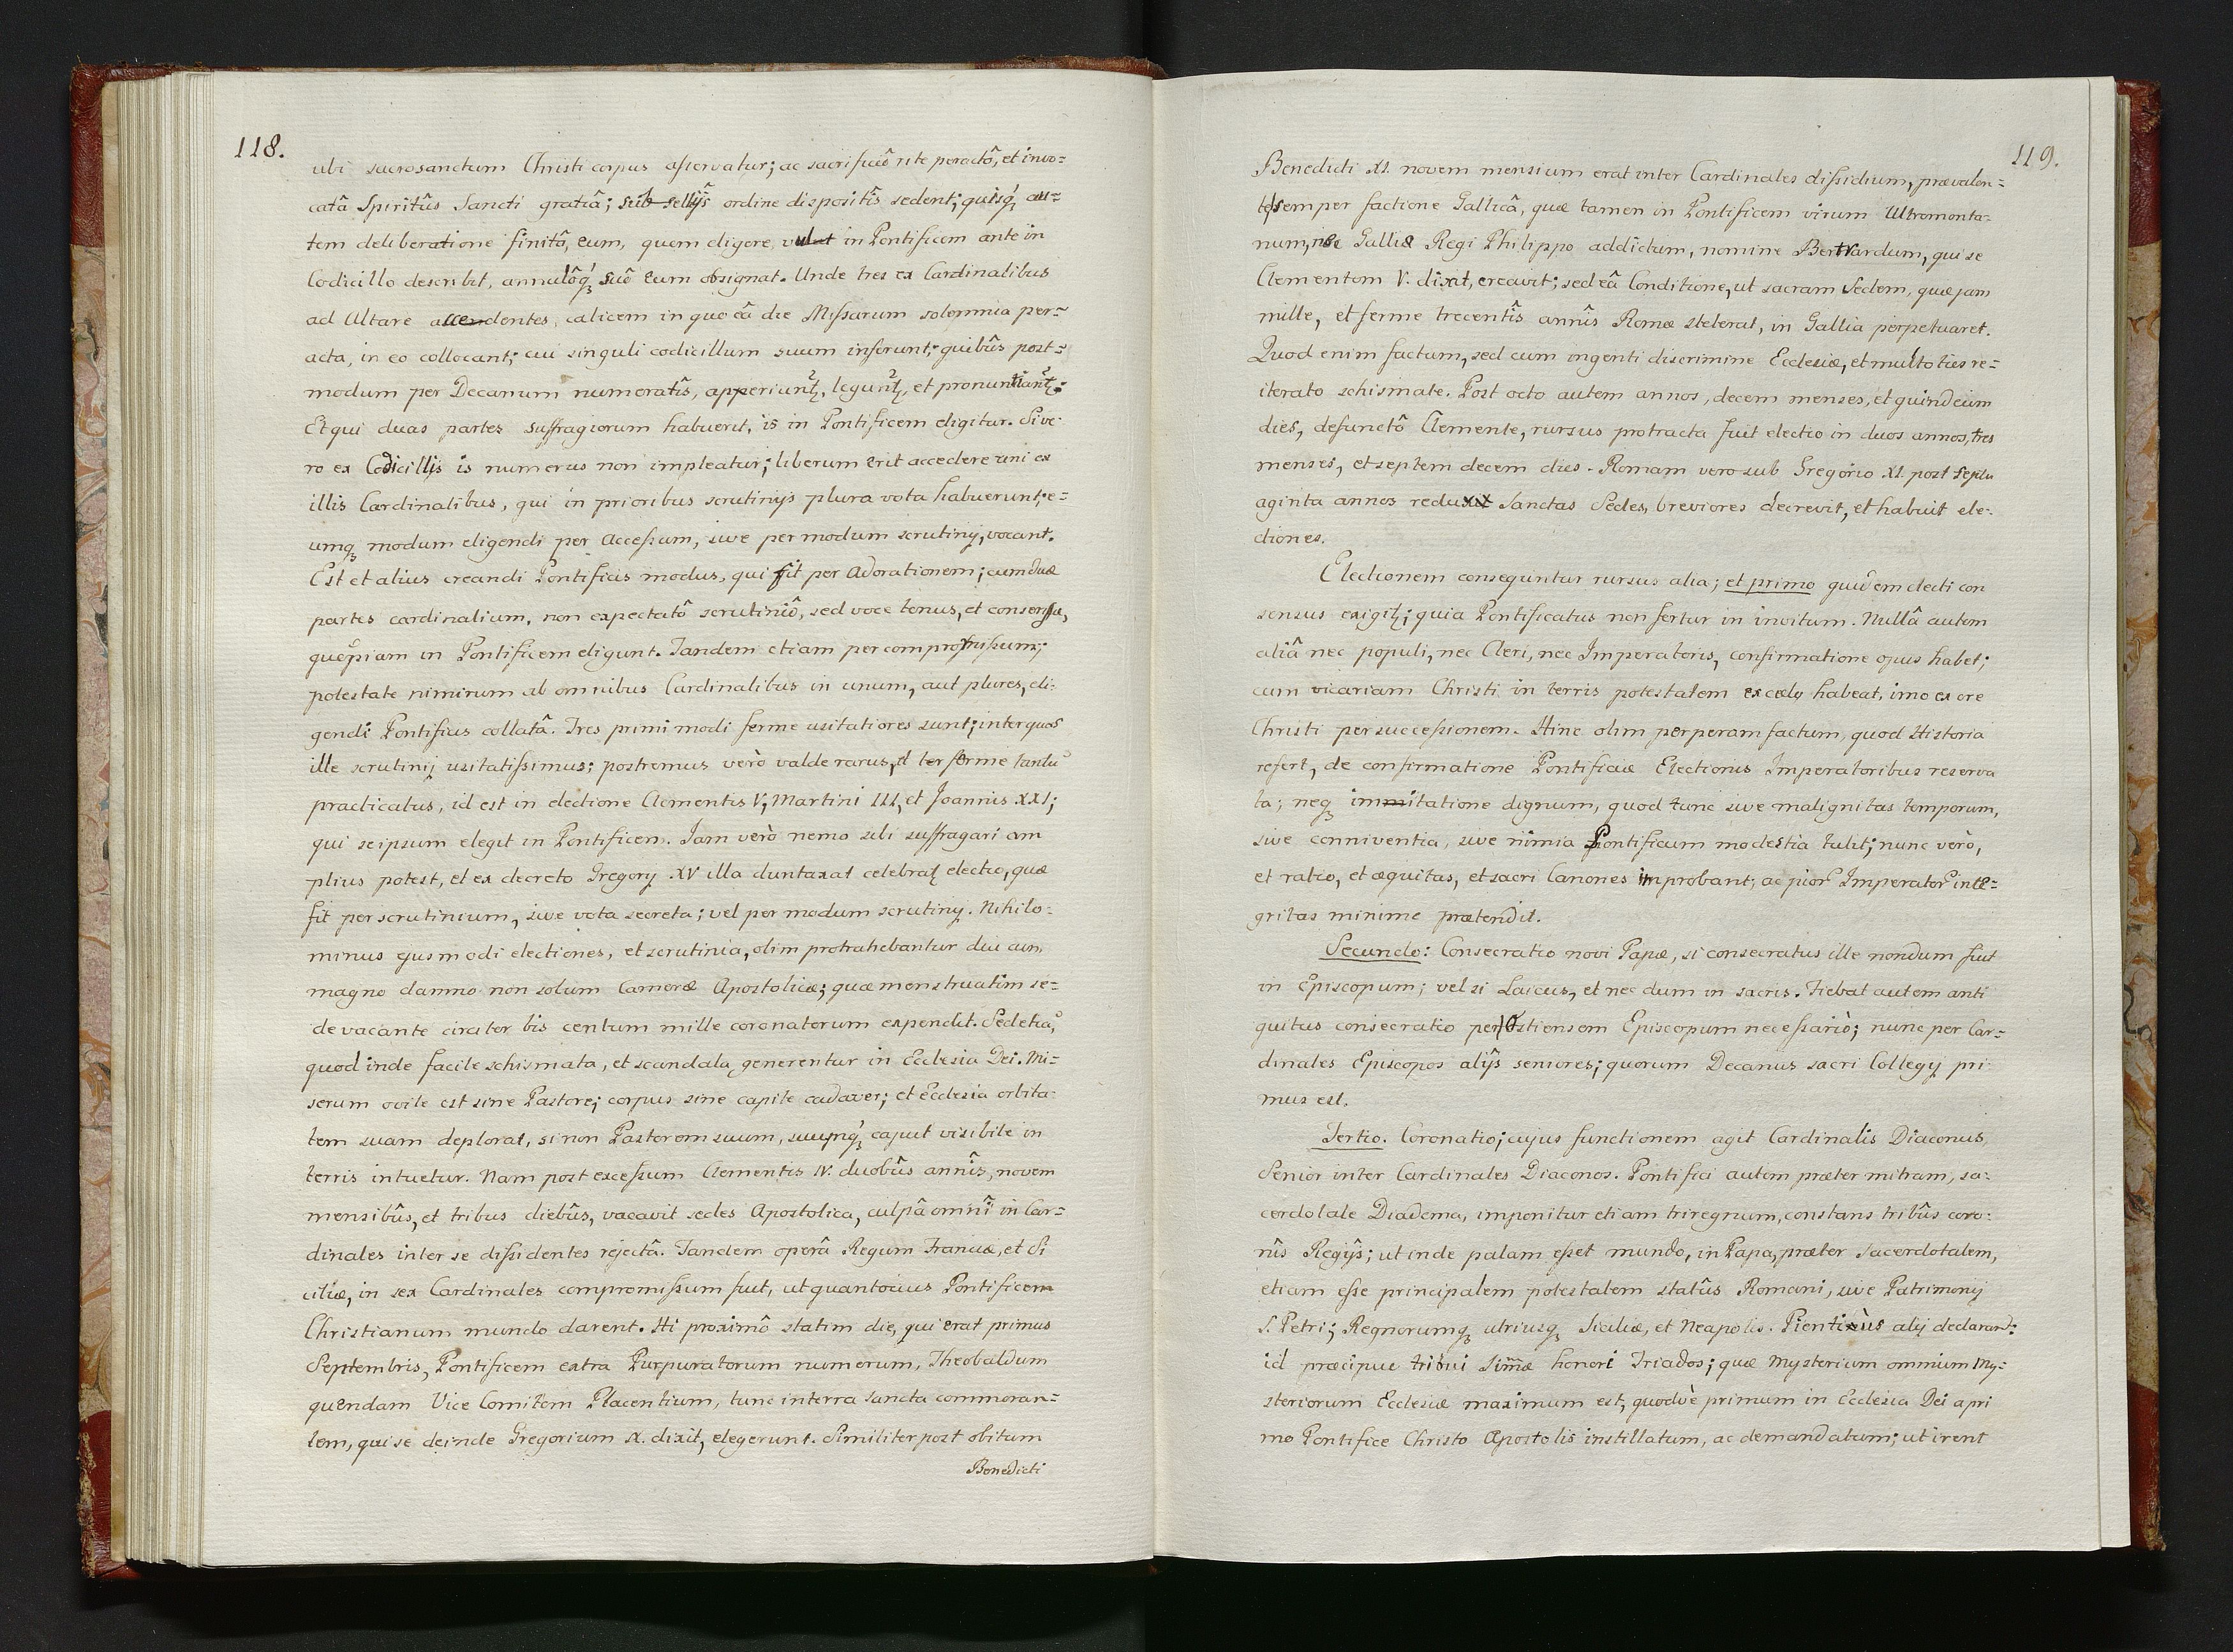 118.
ubi sacrosanctum Christi corpus asservatur; ac sacrificiô rite peractô, et invo=
catâ Spiritûs Sancti gratiâ; sub sellijs ordine dispositîs sedent; quisq́ꝫ au=
tem deliberatione finitâ, eum, quem eligere, vult in Pontificem ante in
Codicillo describit, annulôq́ꝫ suô eum obsignat. Unde tres ex Cardinalibus
ad Altare accedentes, calicem in quo eâ die Missarum solemnia per=
acta, in eo collocant; cui singuli codicillum suum inserunt; quibûs post=
modum per Decanum numeratîs, apperiunt̃, legunt̃, et pronuntiant̃:
Et qui duas partes suffragiorum habuerit, is in Pontificem eligitur. Si ve=
ro ex Codicillis is numerus non impleatur; liberum erit accedere uni ex
illis Cardinalibus, qui in prioribus scrutinijs plura vota habuerunt; e=
umqꝫ modum eligendi per Accessum, sive per modum scrutinij, vocant.
Est et alius creandi Pontificis modus, qui fit per Adorationem; cum duæ
partes cardinalium, non expectatô scrutiniô, sed voce tenus, et consensu,
quẽpiam in Pontificem eligunt. Tandem etiam per compromissum;
potestate nimirum ab omnibus Cardinalibus in unum, aut plures, eli=
gendi Pontificis collatâ. Tres primi modi ferme usitatiores sunt; inter quos
ille scrutinij usitatissimus; postremus verò valde rarus, et ter ferme tantũ
practicatus, id est in electione Clementis V, Martini III, et Joannis XXI;
qui seipsum elegit in Pontificem. Jam verò nemo sibi suffragari am
plius potest, et ex decreto Gregorij XV illa duntaxat celebrat̃ electio, quæ
fit per scrutinium, sive vota secreta; vel per modum scrutinij. Nihilo=
minus ejusmodi electiones, et scrutinia, olim protrahebantur diu cum,
magno damno non solùm Cameræ Apostolicæ; quæ menstruatim se=
de vacante circiter bis centum mille coronatorum expendit. Sed etiã,
quod inde facile schismata, et scandala generentur in Ecclesia Dei. Mi=
serum ovile est sine Pastore; corpus sine capite cadaver; et Ecclesia orbita=
tem suam deplorat, si non Pastorem suum, suumq́ꝫ caput visibile in
terris intuetur. Nam post excessum Clementis IV. duobûs annîs, novem
mensibûs, et tribus diebûs, vacavit sedes Apostolica, culpâ omnî in Car=
dinales inter se dissidentes rejectâ. Tandem operâ Regum Franciæ, et Si
ciliæ, in sex Cardinales compromissum fuit, ut quantocius Pontificem
Christianum mundo darent. Hi proximô statim die, qui erat primus
Septembris, Pontificem extra Purpuratorum numerum, Theobaldum
quendam Vice Comitem Placentium, tunc in terra sancta commoran=
tem, qui se deinde Gregorium X. dixit, elegerunt. Similiter post obitum
Benedicti
119.
Benedicti XI. novem mensium erat inter Cardinales dissidium, prævalen=
te semper factione Gallicâ, quæ tamen in Pontificem virum Ultramonta=
num, nec Galliæ Regi Philippo addictum, nomine Bertrardum, qui se
Clementem V. dixit, creavit; sed eâ Conditione, ut sacram Sedem, quæ jam
mille, et ferme trecentîs annîs Romæ steterat, in Gallia perpetuaret.
Quod enim factum, sed cum ingenti discrimine Ecclesiæ, et multoties re=
iterato schismate. Post octo autem annos, decem menses, et quindecim
dies, defunctô Clemente, rursus protracta fuit electio in duos annos, tres
menses, et septem decem dies. Romam vero sub Gregorio XI. post septu
aginta annos redux Sanctas Sedes, breviores decrevit, et habuit ele=
ctiones.
Electionem conseguntur rursus alia; et primo quidem electi con
sensus exigit̃; quia Pontificatus non fertur in invitum. Nullâ autem
aliâ nec populi, nec Cleri, nec Imperatoris, confirmatione opus habet;
cum vicariam Christi in terris potestatem ex cælo habeat, imo ex ore
Christi per successionem. Hinc olim perperam factum, quod Historia
refert, de confirmatione Pontificiæ Electionis Imperatoribus reserva
ta; neqꝫ imitatione dignum, quod tunc sive malignitas temporum,
sive conniventia, sive nimia Pontificum modestia tulit; nunc verò,
et ratio, et æquitas, et sacri Canones improbant; ac pior̃ Imperator̃ inte=
gritas minime prætendit.
Secundo: Consecratio novi Papæ, si consecratus ille nondum fuit
in Episcopum; vel si Laicus, et nec dum in sacris. Fiebat autem anti
quitus consecratio per Ostiensem Episcopum necessariò; nunc per Car=
dinales Episcopos alijs seniores; quorum Decanus sacri Collegij pri
mus est.
Tertio. Coronatio; cujus functionem agit Cardinalis Diaconus,
Senior inter Cardinales Diaconos. Pontifici autem præter mitram, sa=
cerdotale Diadema, imponitur etiam triregnum, constans tribûs coro=
nîs Regijs; ut inde palam esset mundo, in Papa, præter sacerdotalem,
etiam esse principalem potestatem statûs Romani, sive Patrimonij
S. Petri; Regnorumqꝫ utriusqꝫ Siciliæ, et Neapolis. Pientiùs alij declarand:
id præcipue tribui Sim̃æ honori Triados; quæ Mysterium omnium My=
steriorum Ecclesiæ maximum est, quodvè primum in Ecclesia Dei a pri
mo Pontifice Christo Apostolis instillatum, ac demandatum; ut irent